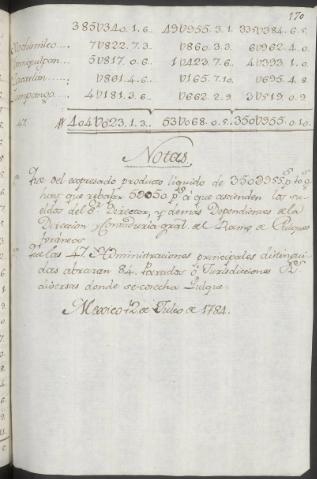 170
385V340.1.6. 49V955.3.1 335V384.6.5.
Xochimilco.... 7V822.7.3. V860.3.3. 6V962.4.0.
5V817.0.6 1V423.7.6 4V393.1.0.
V861.4.6. V165.7.10. V695.4.8
4V181.3.6 V662.2.9 3V519.0.9
47. 404V023.1.3.. 53V068.0.5. 350V955.0.10.
Notas.
Que del expresado producto liquido de 350V955 p.s
hay que rebajar 50050 p.s à que ascienden los
sueldos del S.r Director, y demás Dependientes de la
Direccion y Contaduria gral. del Ramo de Pulques
blancos.
Que las 47. Administraciones principales distingui-
das abrazan 84. Partidos ò Jurisdicciones
diversas donde se cosecha Pulque.
Mexico 12 de Julio de 1784.